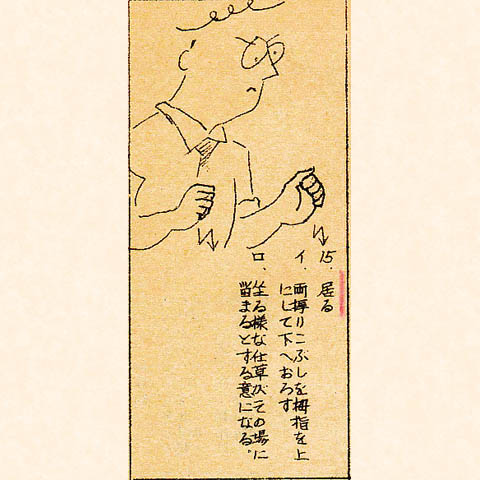 15. 居る
イ、両握りこぶしを拇指を上
にして下へおろす
ロ、坐る様な仕草がその場に
留まるとする意になる。